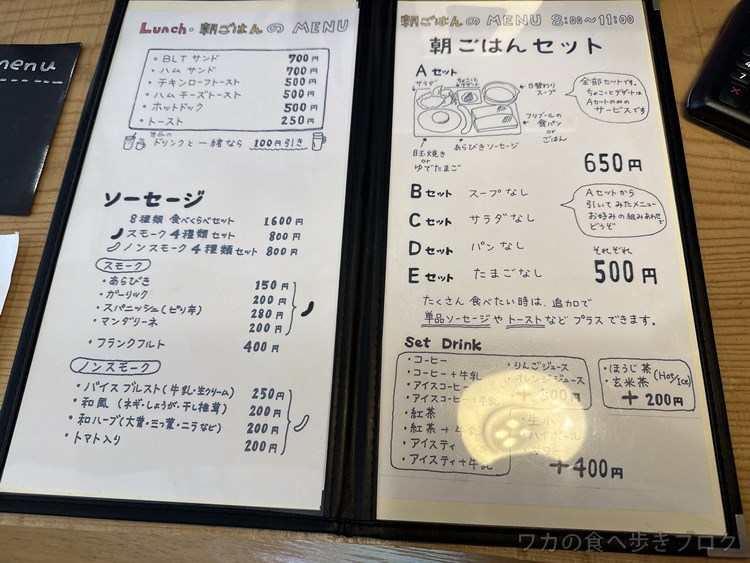 menu
Lunch・朝ごはんの MENU
・BLT サンド 700円
・ハム サンド 700円
・チキンローフトースト 500円
・ハムチーズトースト 500円
・ホットドック 500円
・トースト 250円
単品の
ドリンクと一緒なら 100円引き
ソーセージ
8種類 食べくらべセット 1600円
スモーク4種類セット 800円
ノンスモーク4種類セット 800円
スモーク
・あらびき 150円
・ガーリック 200円
・スパニッシュ(ピリ辛) 280円
・マンダリーネ 200円
・フランクフルト 400円
ノンスモーク
・パイスブルスト(牛乳・生クリーム) 250円
・和風(ネギ・しょうが・干し椎茸) 200円
・和ハーブ(大葉・三ッ葉・ニラなど) 200円
・トマト入り 200円
朝ごはんの MENU 8:00~11:00
朝ごはんセット
Aセット
サラダ
ちょこっと
デザート
日替わり
スープ
全部セットです。
ちょこっとデザートは
Aセットのみの
サービスです
目玉焼き
or
ゆでたまご
あらびきソーセージ
の
食パン
or
ごはん
650円
Bセット スープなし
Cセット サラダなし
Dセット パンなし
Eセット たまごなし
Aセットから
引いてみたメニュー
お好みの組みあわせで
どうぞ
それぞれ
500円
たくさん食べたい時は、追加で
単品ソーセージやトーストなどプラスできます。
Set Drink
・コーヒー
・コーヒー+牛乳
・アイスコーヒー
・アイスコーヒー+牛乳
・紅茶
・紅茶+牛乳
・アイスティ
・アイスティ+牛乳
・りんごジュース
・オレンジジュース
+300円
・ほうじ茶
・玄米茶
(Hot/Ice)
+200円
・生ビ
・ハイボール
+400円
ワカの食べ歩きブログ